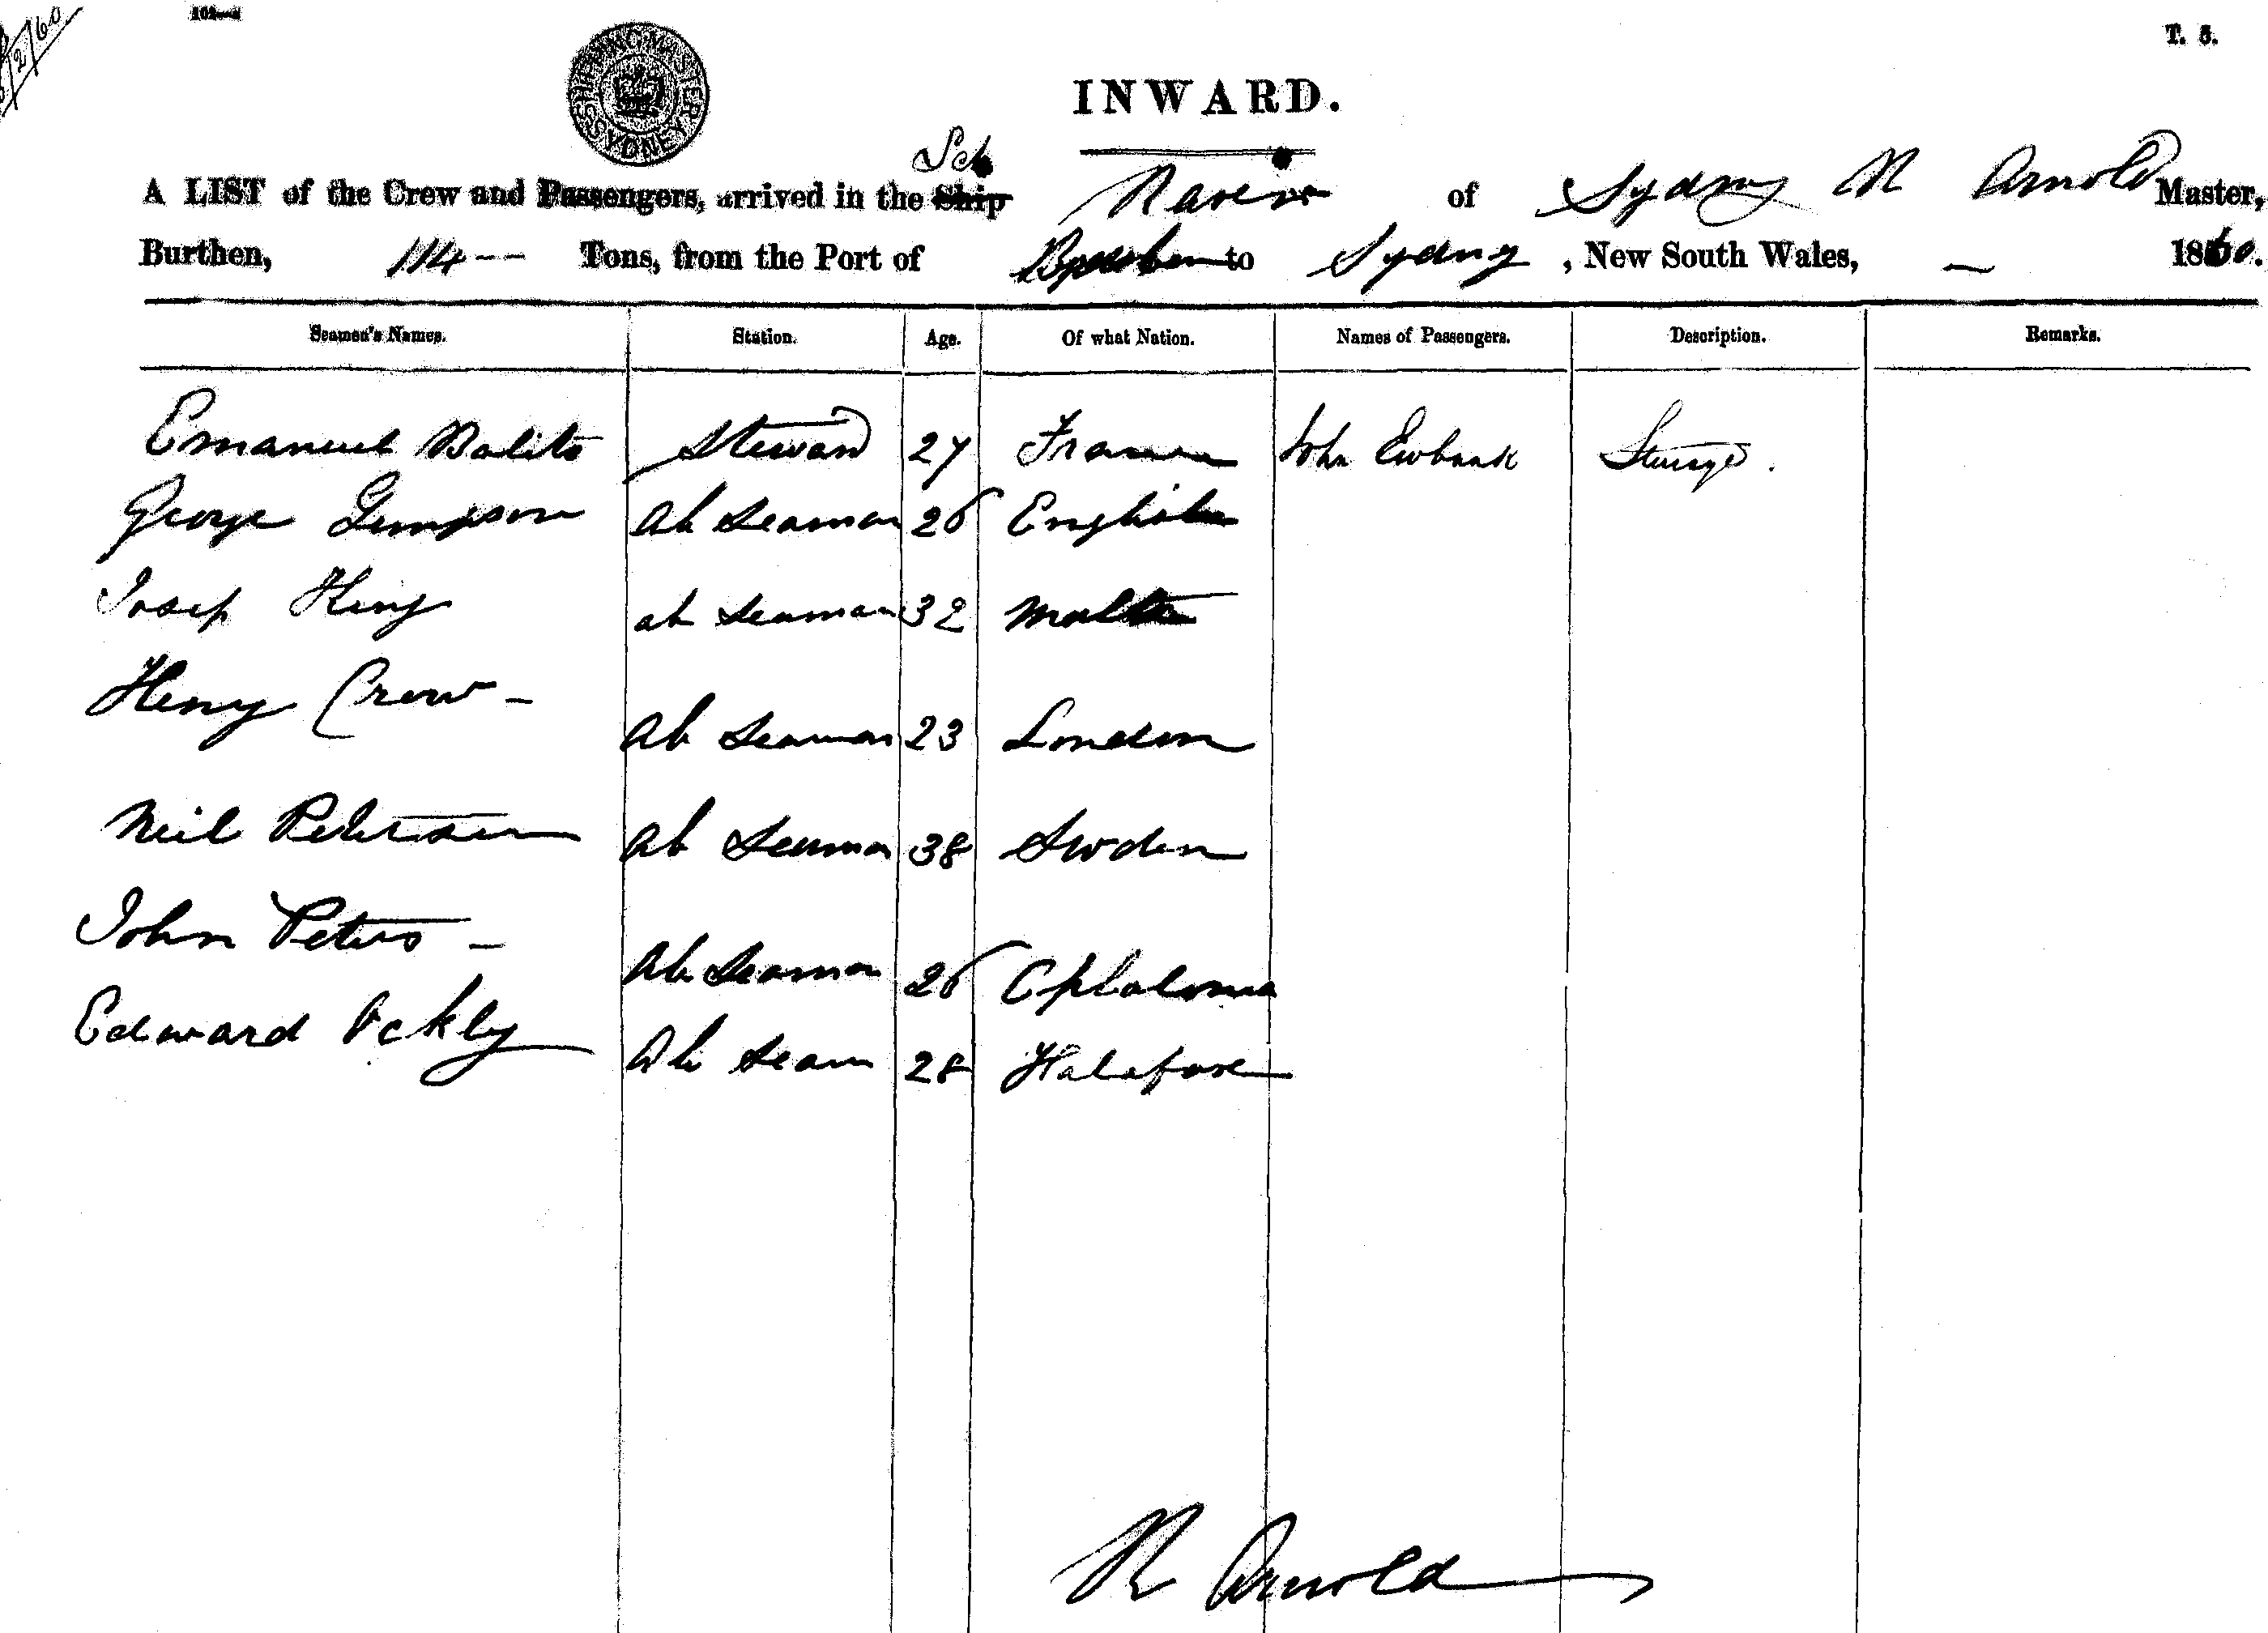 2/60
T. 5.
SHIPPING MASTER SYDNEY
INWARD.
Sch
A LIST of the Crew and Passengers, arrived in the Ship Raven of Sydney R Arnold Master,
Burthen, 114 -- Tons, from the Port of to Sydney, New South Wales, — 1860.
Seamen's Names. Station. Age. Of what Nation. Names of Passengers. Description. Remarks.
Emanuel Balito Steward 27 France John Ewbank Steerage.
George Simpson ab Seaman 26 English
Josep King ab Seaman 32 Malta
Henry Crow - ab Seaman 23 London
Neil Petersen ab Seaman 38 Swden
John Peters - ab Seaman 26 Cphalonia
Edward Ockly ab Seam 28 Halafax
R Arnold